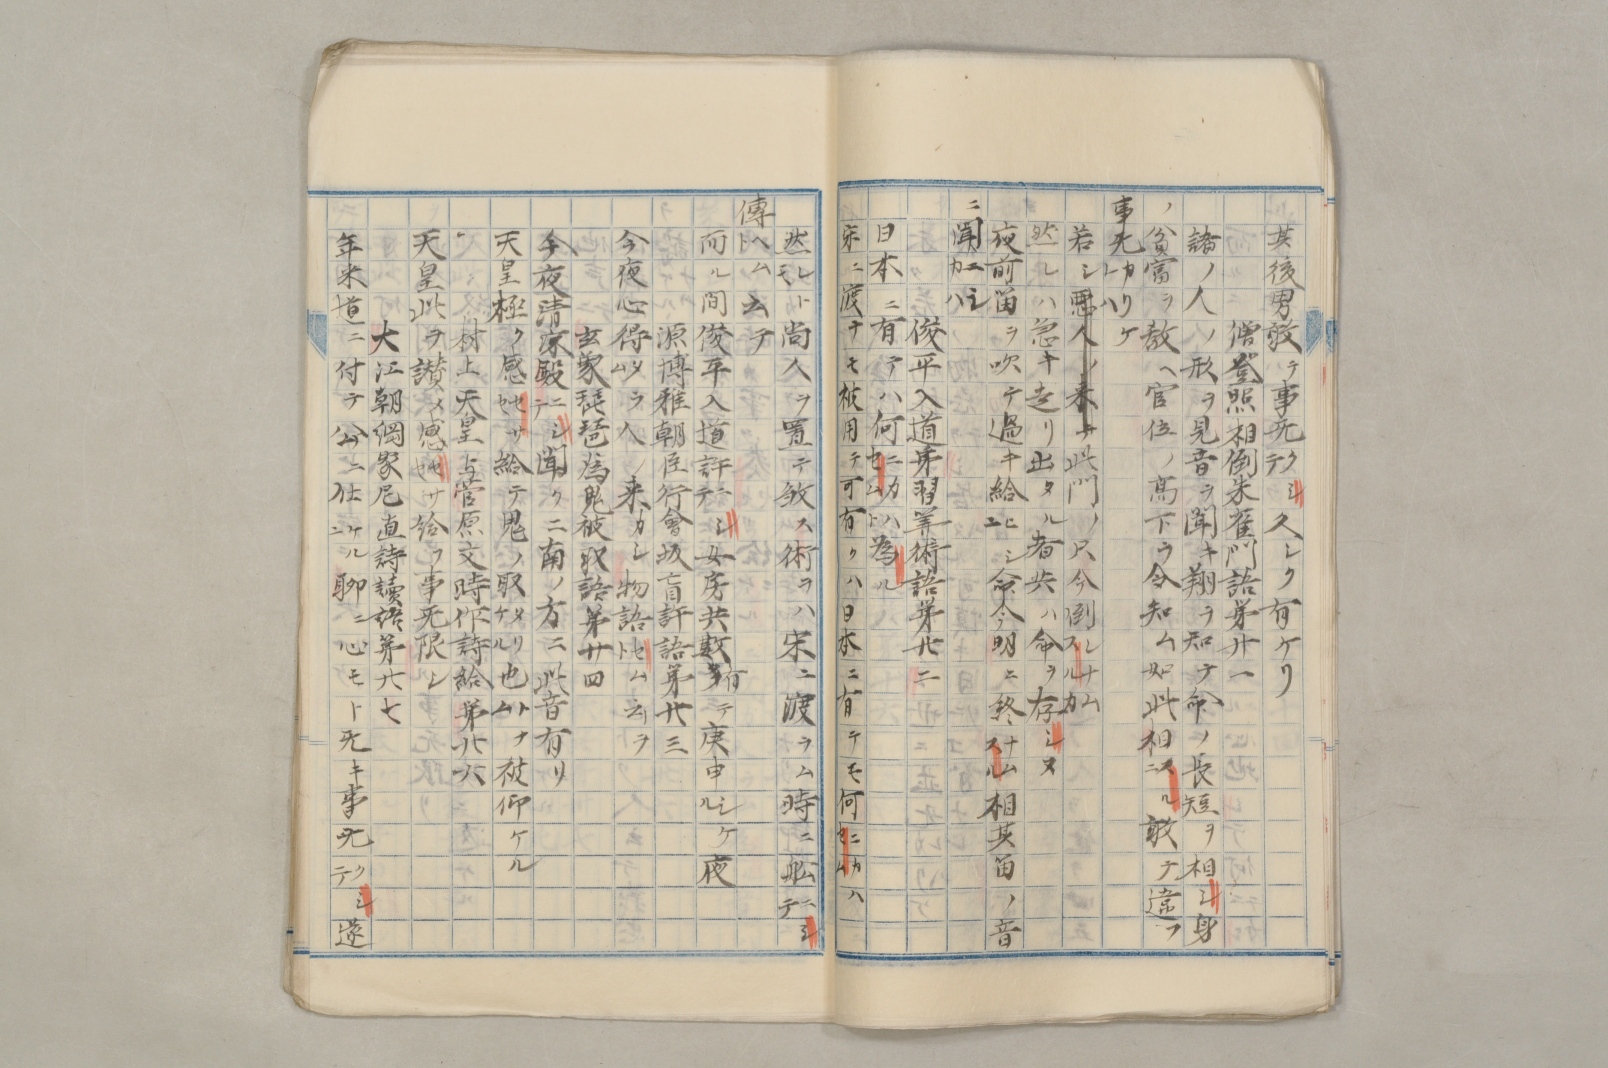 其後男敢テ事旡クシテ久シク有ケリ
僧登照相倒朱雀門語第廿一
諸ノ人ノ形ヲ見音ヲ聞キ翔ヲ知テ命ノ長短ヲ相シ身
ノ貧富ヲ教ヘ官位ノ高下ヲ令知ム如此相スルニ敢テ違フ
事旡カリケ
若シ悪人ノ来テ此門ノ只今倒スルカ
然レハ急キ走リ出タル者共ハ命ヲ存シヌ
夜前笛ヲ吹テ過キ給ヒシニ命今明ニ終ナムスル相其笛ノ音
ニ聞エシカハ
俊平入道弟習算術語第廿二
日本ニ有テハ何ニカハセムト為ル
宋ニ渡テモ被用テ可有クハ日本ニ有テモ何ニカハセム
然レトモ尚人ヲ置テ敢ス術ヲハ宋ニ渡ラム時ニ船ニシテ
傳ヘムト云テ
而ル間俊平入道許ニシテ女房共数有テ庚申シケル夜
源博雅朝臣行會坂盲許語第廿三
今夜心得タラム人ノ来カシ物語セムト云ヲ
玄象琵琶為鬼被取語第廿四
今夜清凉殿ニシテ聞クニ南ノ方ニ此音有リ
天皇極ク感セサセ給テ鬼ノ取タリケル也トナム被仰ケル
村上天皇与菅原文時作詩給第廿六
天皇此ヲ讃メ感セサセ給フ事旡限シ
大江朝綱家尼直詩讀語第廿七
年来道ニ付テ公ニ仕ケルニ聊ニ心モト旡キ事旡クシテ遂